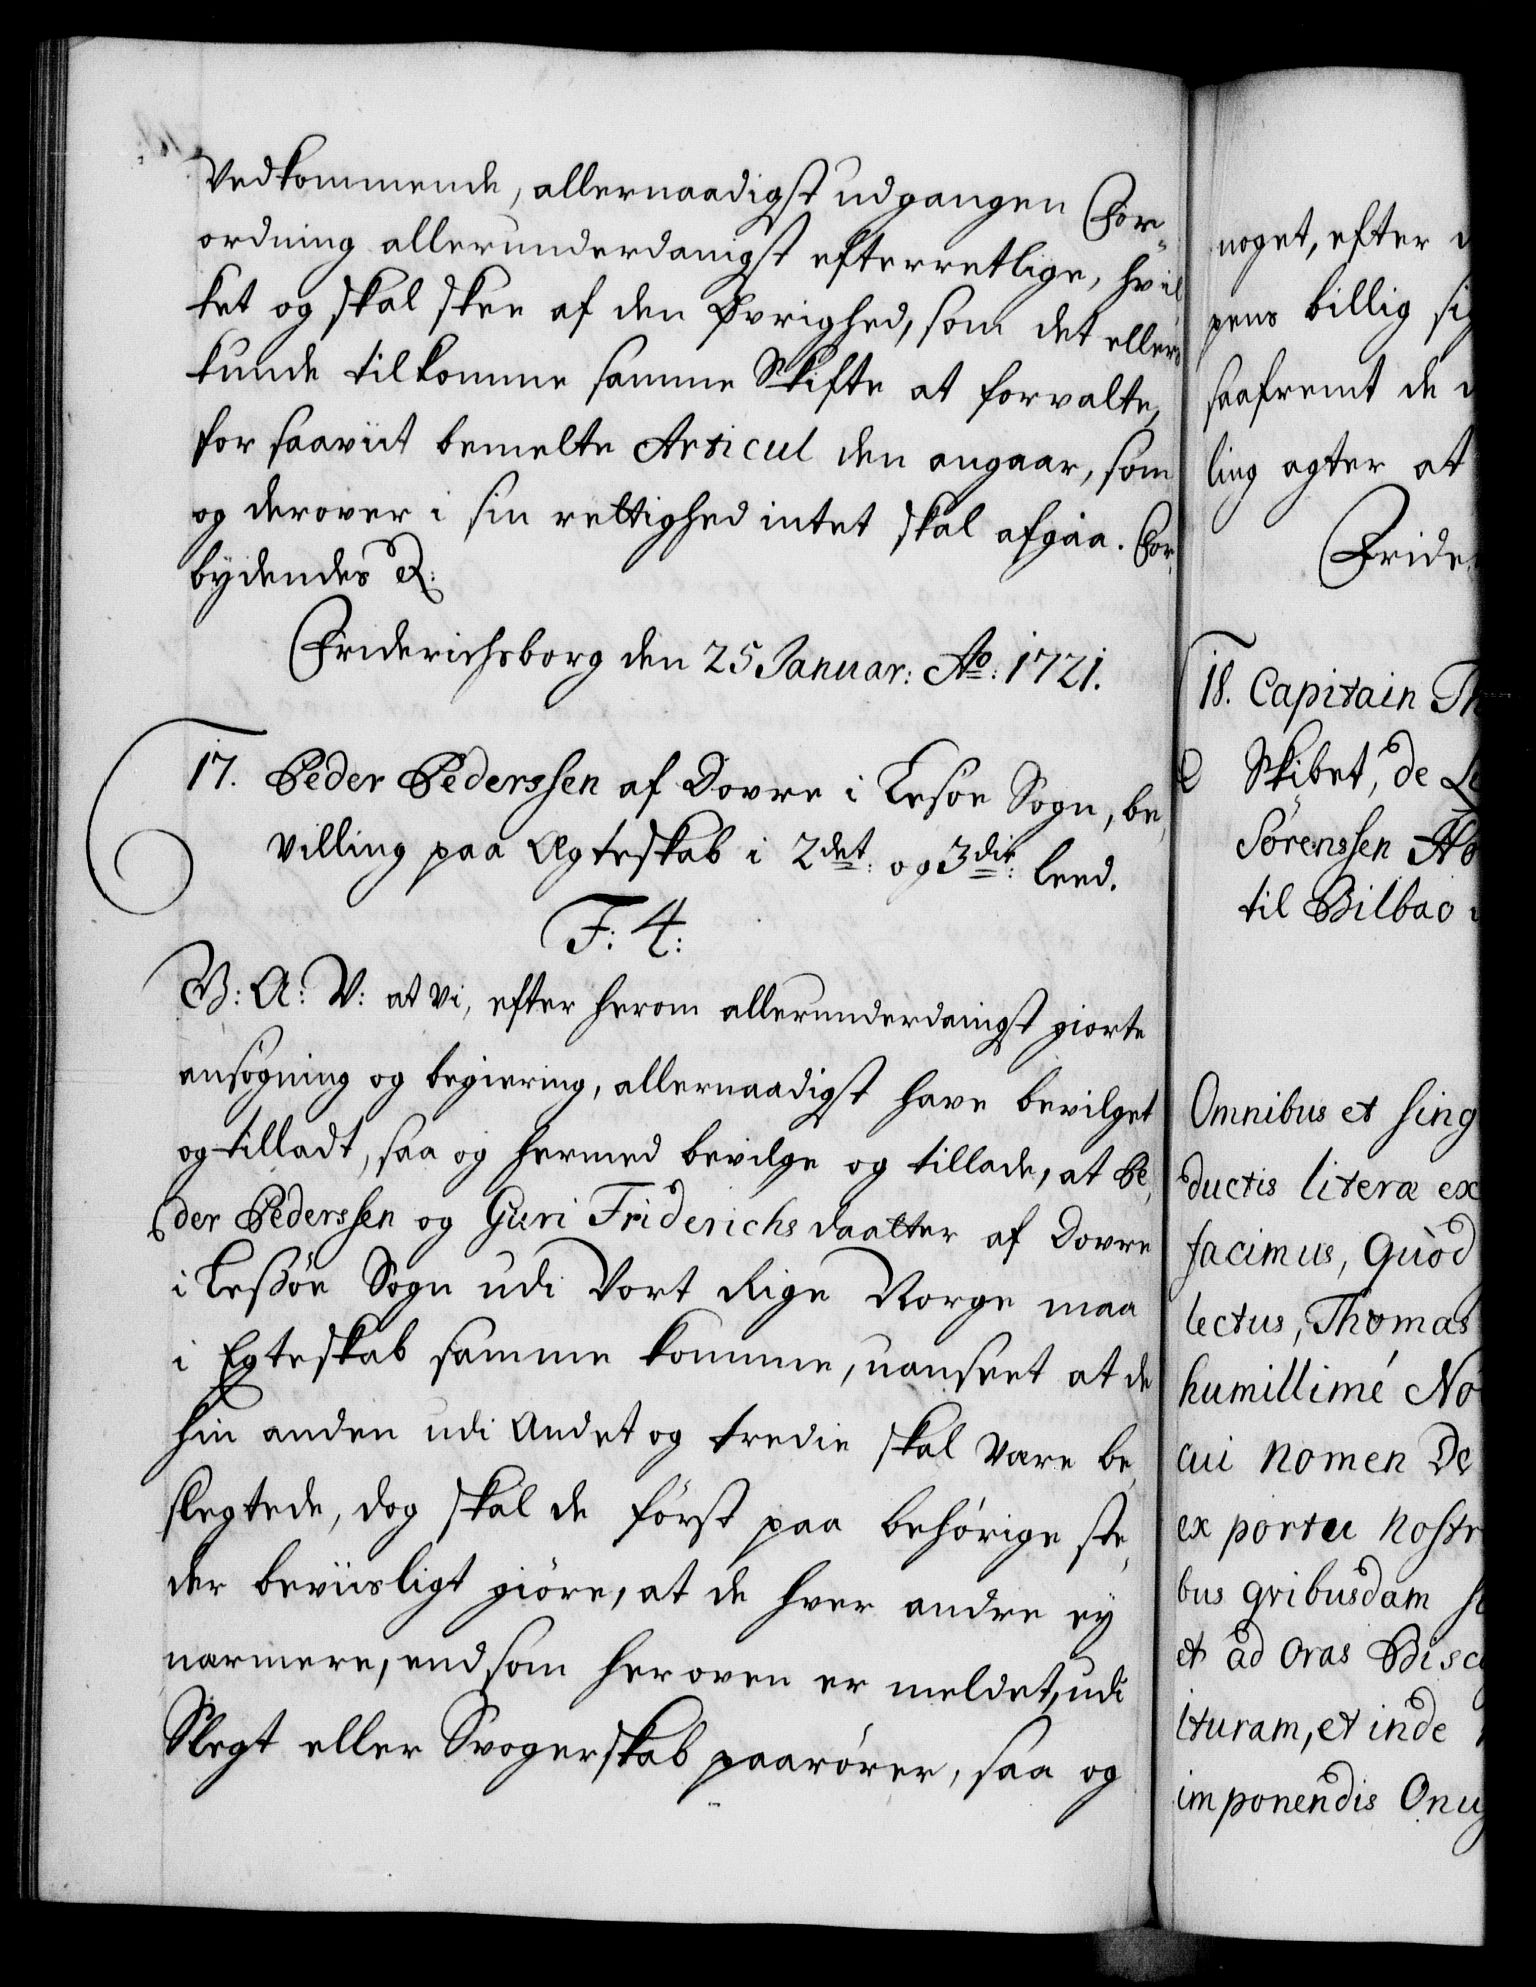 Vedkommende, allernaadigst udgangen For-
ordning allerunderdanigst efterretlige, hvil-
ket og skal skee af den Øvrighed, som det ellers
kunde tilkomme samme Skifte at forvalte,
for saaviit bemelte Articul den angaar, som
og derover i sin rettighed intet skal afgaa. For-
bydendes &:
Friderichsborg den 25 Januar: Ao: 1721.
17. Peder Pederssen af Dovre i Lesøe Sogn, be-
villing paa Ægteskab i 2det: og 3die: Leed.
F: 4:
V: A: V: at vi, efter herom allerunderdanigst giorte
ansøgning og begiering, allernaadigst have bevilget
og tilladt, saa og hermed bevilge og tillade, at Pe-
der Pederssen og Guri Friderichs daatter af Dovre
i Lessøe Sogn udi Vort Rige Norge maa
i Egteskab samme komme, uanseet at de
hin anden udi Andet og tredie skal være be-
slegtede, dog skal de først paa behørige ste-
der beviisligt giøre, at de hver andre ey
nærmere, end som her oven er meldet, udi
Slegt eller Svogerskab paarører, saa og
noget, efter
pens billig
saafremt de
ling agter at
Fride
18. Capitain Th
Skibet, de
Sørenssen
til Bilbao
Omnibus et sing
ductis literæ ex
facimus, Quòd
lectus, Thomas
humillimé No
cui nomen De
ex portu nostr
bus qvibusdam
et ad oras Bisc
ituram, et inde
imponendis Onu